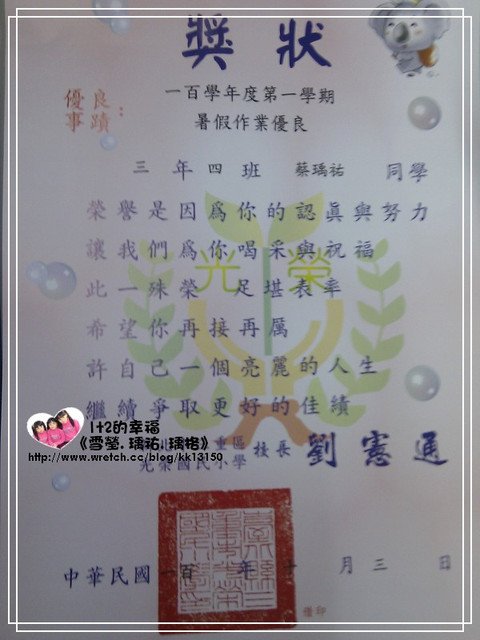 獎狀
一百學年度第一學期
優良
事蹟：
暑假作業優良
三年四班 蔡瑀祐 同學
榮譽是因為你的認真與努力
讓我們為你喝采與祝福
光榮
此一殊榮 足堪表率
希望你再接再厲
許自己一個亮麗的人生
繼續爭取更好的佳績
重區
光榮國民小學 校長 劉憲通
1+2的幸福
《雪瑩.瑀祐.瑀格》
http://www.wretch.cc/blog/kk13150
中華民國一百年十月三日